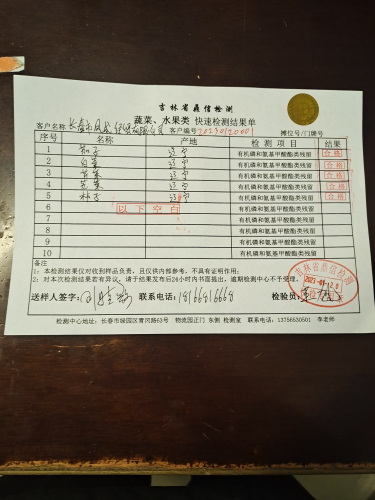 吉林省鼎信检测
蔬菜、水果类 快速检测结果单
客户名称 长春市 客户编号 摊位号/门牌号
序号 名称 产地 检测项目 结果
1 茄子 辽宁 有机磷和氨基甲酸酯类残留 合格
2 白菜 辽宁 有机磷和氨基甲酸酯类残留 合格
3 辽宁 有机磷和氨基甲酸酯类残留 合格
4 辽宁 有机磷和氨基甲酸酯类残留 合格
5 辽宁 有机磷和氨基甲酸酯类残留 合格
6 以下空白 有机磷和氨基甲酸酯类残留
7 有机磷和氨基甲酸酯类残留
8 有机磷和氨基甲酸酯类残留
9 有机磷和氨基甲酸酯类残留
10 有机磷和氨基甲酸酯类残留
备注
1：本检测结果仅对收到样品负责，且仅供内部参考，不具有证明作用；
2：对本次检测结果若有异议，请于结果发布后24小时内书面提出，逾期检测中心不予受理。
送样人签字： 联系电话：18166816668 检验员：
检测中心地址：长春市绿园区青冈路63号 物流园正门 东侧 检测室 联系电话：13756530501 李老师